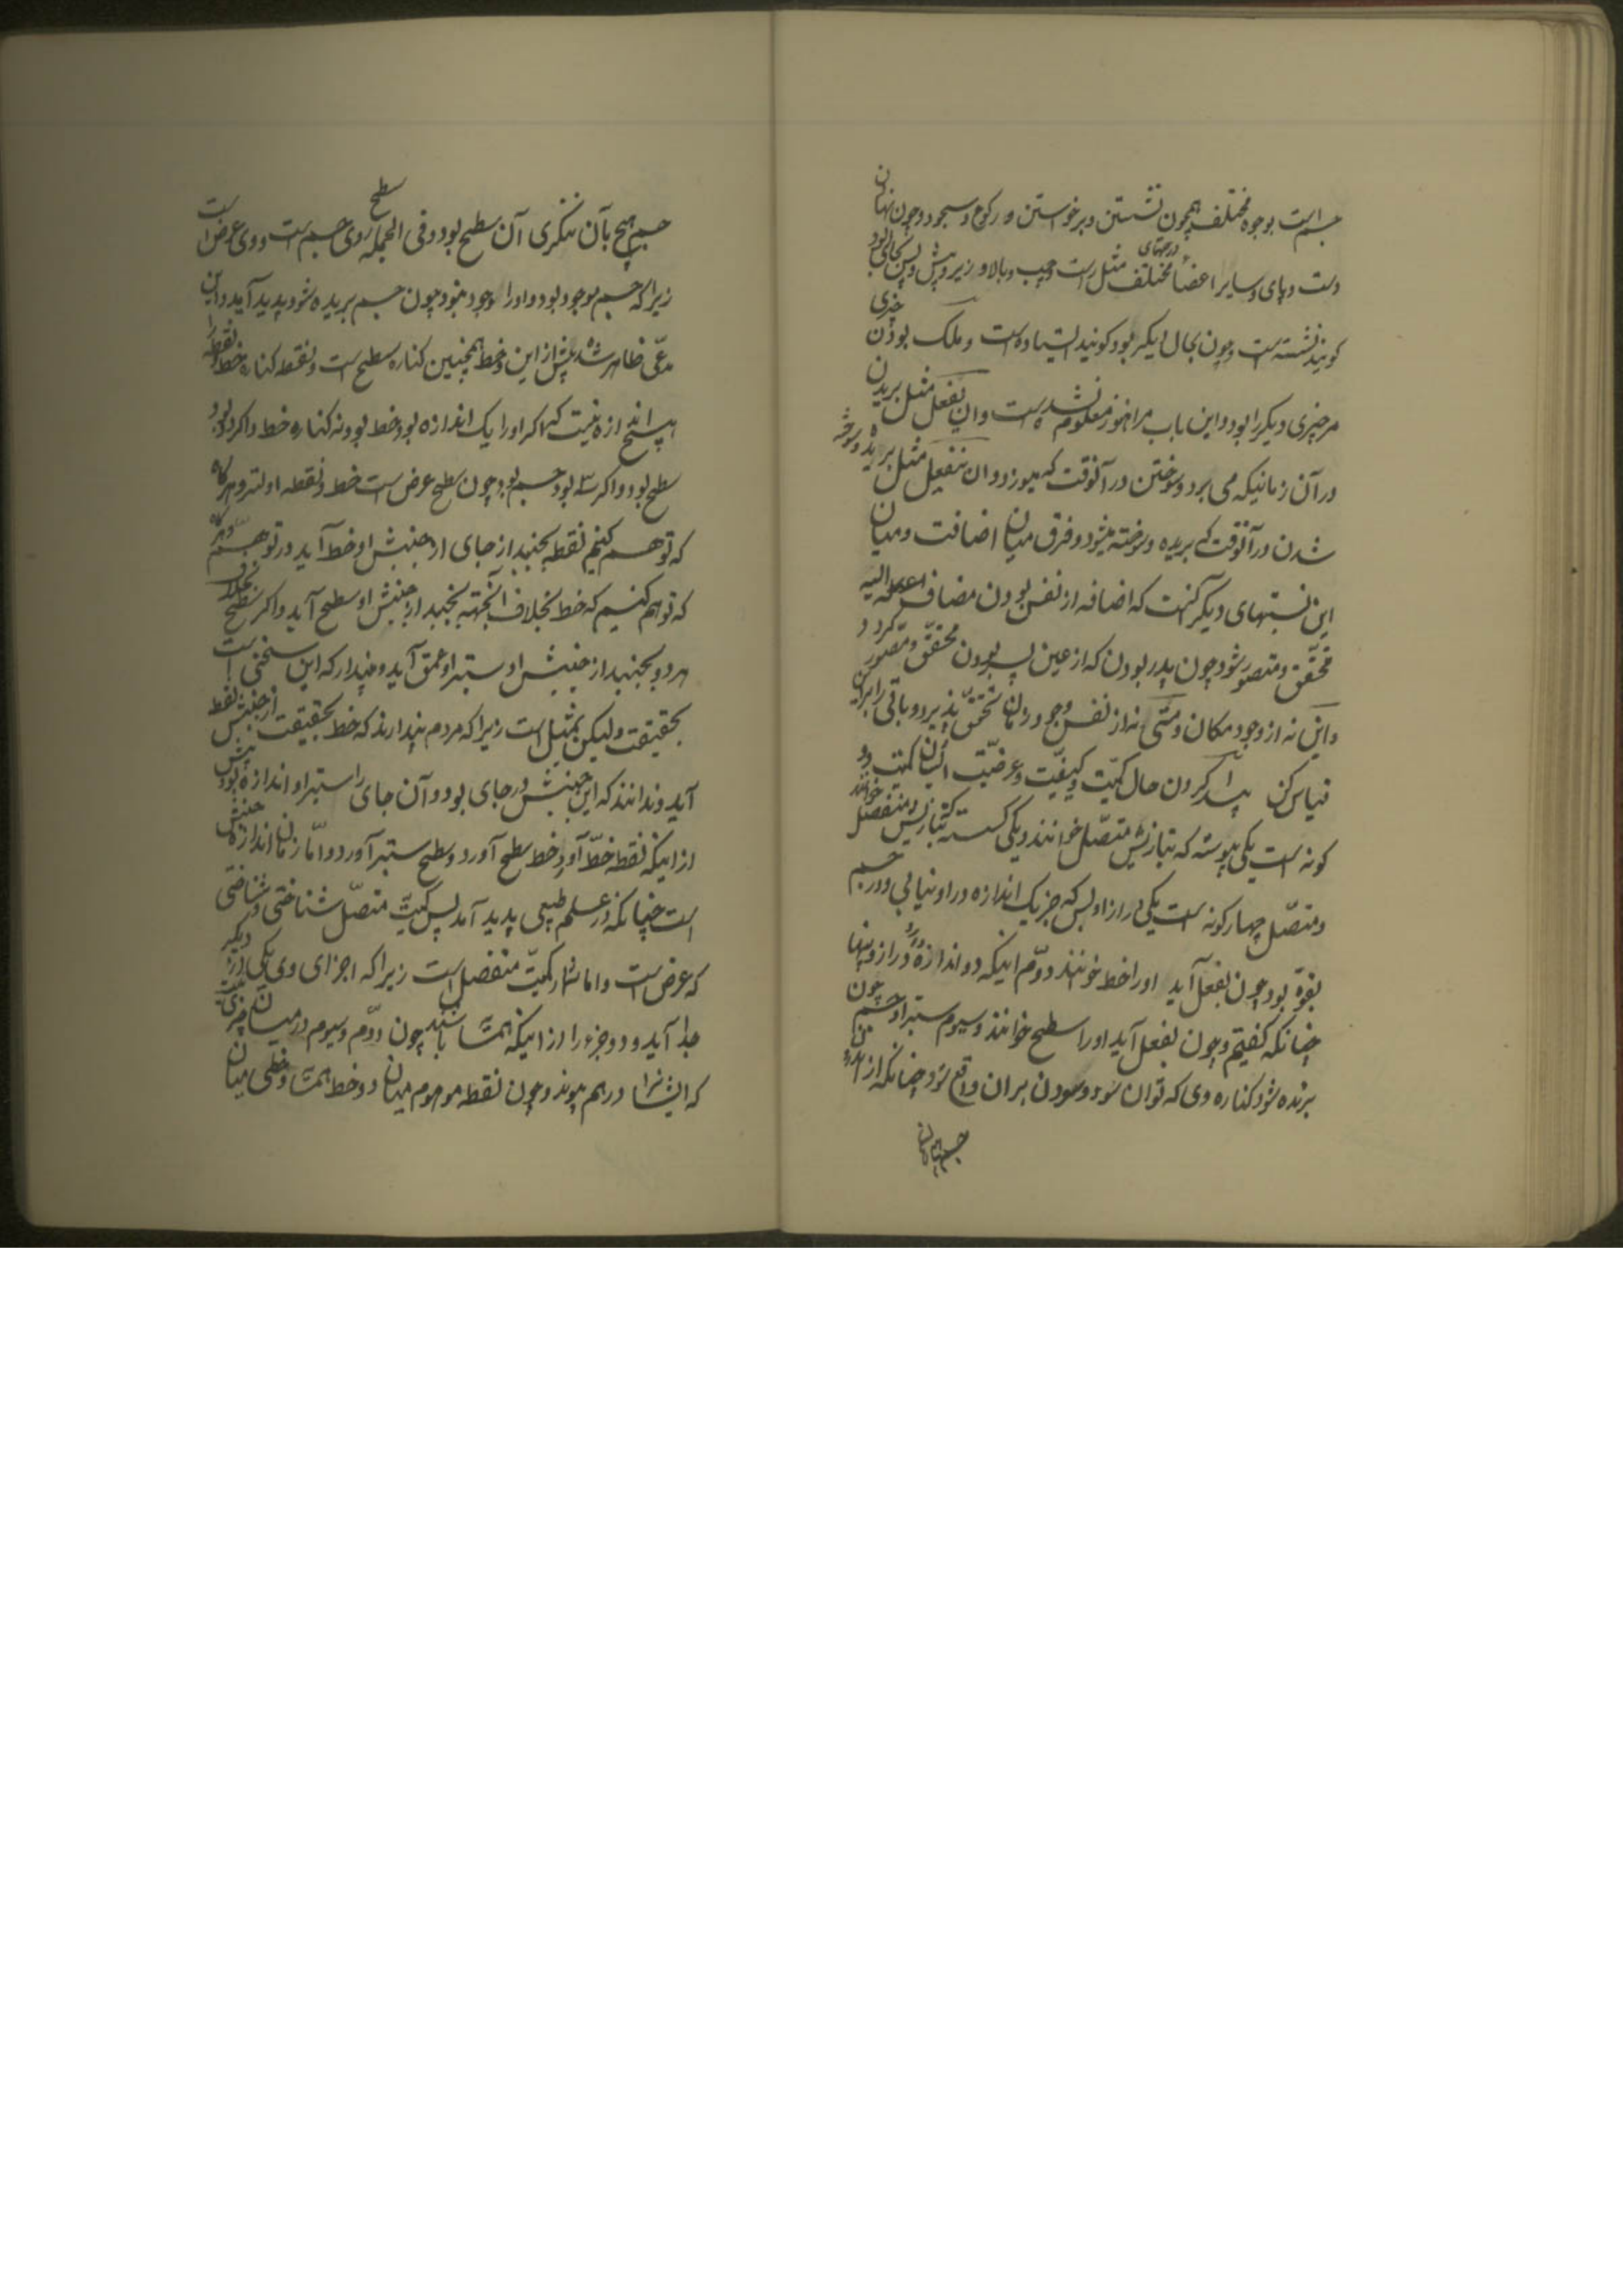 جسم است بوجوه مختلف همچون نشستن و برخواستن و رکوع و سجود و چون نهادن
دست و پای و سایر اعضا درجهتهای مختلف مثل راست و چپ و بالا و زیر و پیش و پس بحالی بود
کویند نشسته است و چون بحال دیکر بود کویند ایستاده است و ملک بودن چیزی
مر چیزی دیکر را بود و این باب مرا هنوز معلوم نشده است و ان یفعل مثل بریدن
در آن زمانیکه می برد و سوختن در آنوقت که میسوزد و ان ینفعل مثل بریده و سوخته
شدن در آنوقت که بریده و سوخته میشود و فرق میان اضافت و میان
این نسبتهای دیکر آنست که اضافه از نفس بودن مضاف الیه
محقق و متصور شود چون پدر بودن که از عین پسر بودن محقق و متصور کردد
و این نه از وجود مکان و متی نه از نفس وجود زمان تحقق پذیرد و باقی را براین
قیاس کن پیدا کردن حال کمیت و کیفیت و عرضیت ایشان کمیت دو
کونه است یکی پیوسته که بتازیش متصل خوانند و یکی کسسته که بتازیش منفصل خوانند
و متصل چهار کونه است یکی دراز او بس که جز یک اندازه در او نیابی و در جسم
بقوه بود چون بفعل آید او را خط خوانند دوم اینکه دو اندازه دارد دراز و پهنا
چنانکه کفتیم و چون بفعل آید او را سطح خوانند و سیوم ستبرا و جسم چون
برنده شود کناره وی که توان سود و سودن بران واقع شود چنانکه از اندرون
جسم هیچ بآن ننکری آن سطح بود و فی الجمله سطح روی جسم است و وی عرض است
زیرا که جسم موجود بود و او را وجود نبود چون جسم بریده شود پدید آید و این
مدعی ظاهر شد پیش از این و خط همچنین کناره سطح است و نقطه کناره خط و نقطه را
هیچ اندازه نیست که اکر او را یک اندازه بود خط بود و نه کناره خط و اکر دو بود
سطح بود و اکر سه بود جسم بود چون سطح عرض است خط و نقطه اولیتر و هرکاه
که توهم کنیم نقطه بجنبد از جای از جنبش او خط آید در توهم و هرکاه
که توهم کنیم که خط بخلاف آنجهته بجنبد از جنبش او سطح آید و اکر سطح بخلاف
هر دو بجنبد از جنبش او ستبرا و عمق آید و مپندار که این سخنی است
بحقیقت ولیکن بمثیل است زیرا که مردم پندارند که خط بحقیقت از جنبش نقطه
آید و ندانند که این جنبش در جای بود و آن جای را ستبرا و اندازه بود پیش
از اینکه نقطه خط آورد و خط سطح آورد و سطح ستبر آورد و اما زمان اندازه جنبش
است چنانکه در علم طبیعی پدید آمد پس کمیت متصل شناختی و شناختی
که عرض است و اما شمار کمیت منفصل است زیرا که اجزای وی یکی از دیکر
جدا آید و دو جزء را از اینکه همتا باشند چون دوم و سیوم در میان چیزی نیست
که ایشانرا در هم پیوندد چون نقطه موهوم میان دو خط همتا و خطی میان